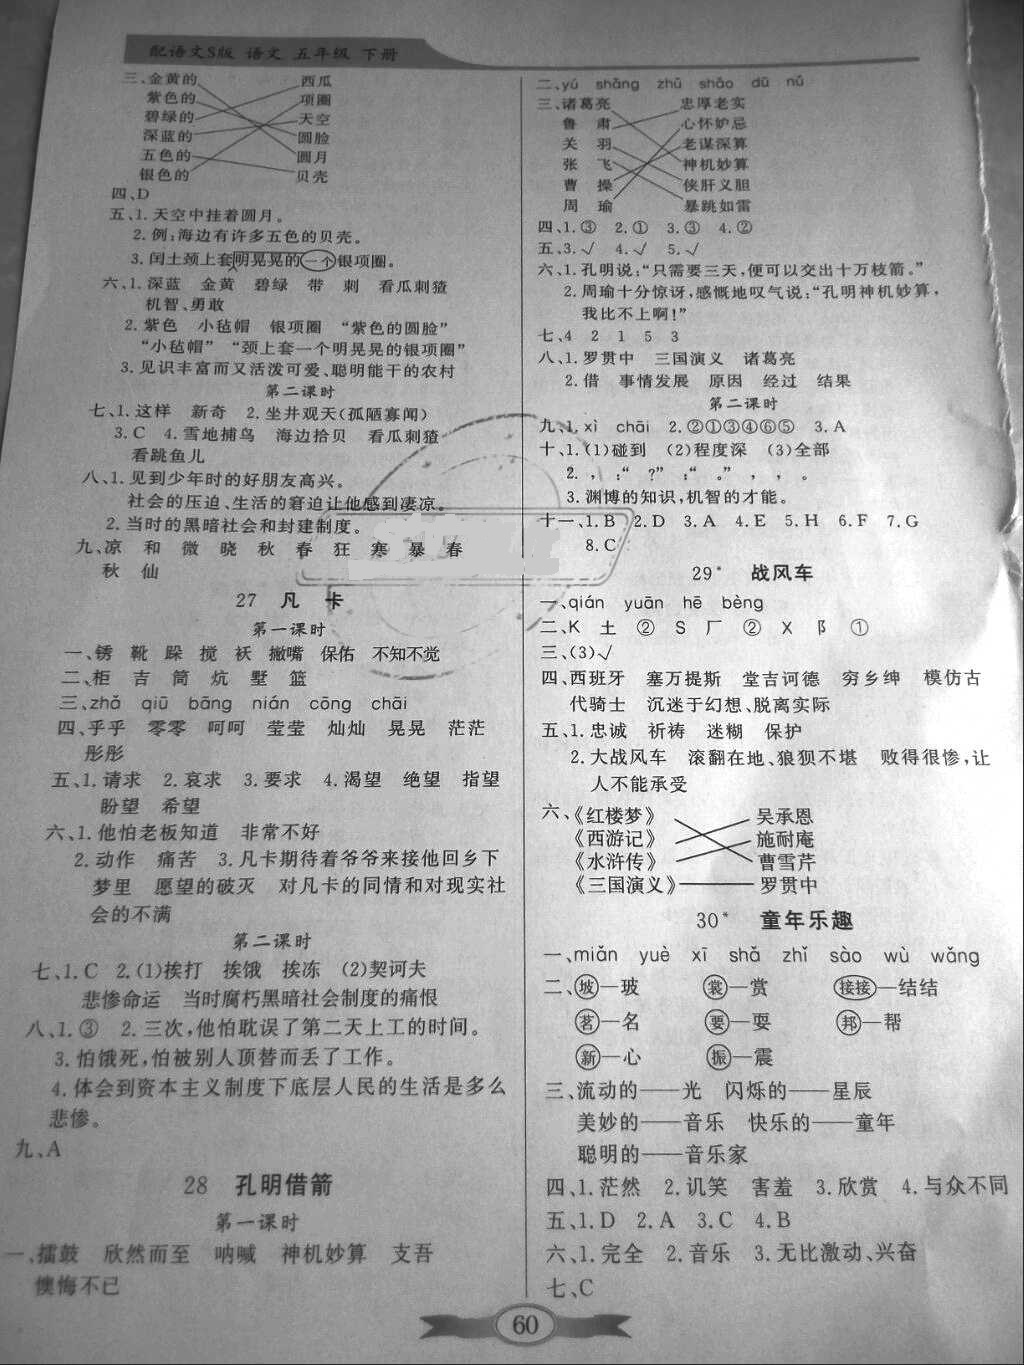 配语文S版 语文 五年级 下册
三、金黄的 西瓜
紫色的 项圈
碧绿的 天空
深蓝的 圆脸
五色的 圆月
银色的 贝壳
四、D
五、1.天空中挂着圆月。
2.例:海边有许多五色的贝壳。
3.闰土颈上套明晃晃的一个银项圈。
六、1.深蓝 金黄 碧绿 带 刺 看瓜刺猹
机智、勇敢
2.紫色 小毡帽 银项圈 “紫色的圆脸”
“小毡帽” “颈上套一个明晃晃的银项圈”
3.见识丰富而又活泼可爱、聪明能干的农村
第二课时
七、1.这样 新奇 2.坐井观天(孤陋寡闻)
3.C 4.雪地捕鸟 海边拾贝 看瓜刺猹
看跳鱼儿
八、1.见到少年时的好朋友高兴。
社会的压迫、生活的窘迫让他感到凄凉。
2.当时的黑暗社会和封建制度。
九、凉 和 微 晓 秋 春 狂 寒 暴 春
秋 仙
27 凡 卡
第一课时
一、锈 靴 跺 搅 袄 撇嘴 保佑 不知不觉
二、柜 吉 筒 炕 墅 篮
三、zhǎ qiū bāng nián cōng chāi
四、乎乎 零零 呵呵 莹莹 灿灿 晃晃 茫茫
彤彤
五、1.请求 2.哀求 3.要求 4.渴望 绝望 指望
盼望 希望
六、1.他怕老板知道 非常不好
2.动作 痛苦 3.凡卡期待着爷爷来接他回乡下
梦里 愿望的破灭 对凡卡的同情和对现实社
会的不满
第二课时
七、1.C 2.(1)挨打 挨饿 挨冻 (2)契诃夫
悲惨命运 当时腐朽黑暗社会制度的痛恨
八、1.③ 2.三次,他怕耽误了第二天上工的时间。
3.怕饿死,怕被别人顶替而丢了工作。
4.体会到资本主义制度下底层人民的生活是多么
悲惨。
九、A
28 孔明借箭
第一课时
一、擂鼓 欣然而至 呐喊 神机妙算 支吾
懊悔不已
二、yú shāng zhū sháo dū nǔ
三、诸葛亮 忠厚老实
鲁 肃 心怀妒忌
关 羽 老谋深算
张 飞 神机妙算
曹 操 侠肝义胆
周 瑜 暴跳如雷
四、1.③ 2.① 3.③ 4.②
五、3.√ 4.√ 5.√
六、1.孔明说:“只需要三天,便可以交出十万枝箭。”
2.周瑜十分惊讶,感慨地叹气说:“孔明神机妙算,
我比不上啊!”
七、4 2 1 5 3
八、1.罗贯中 三国演义 诸葛亮
2.借 事情发展 原因 经过 结果
第二课时
九、1.xì chāi 2.②①③④⑥⑤ 3.A
十、1.(1)碰到 (2)程度深 (3)全部
2. , :“ ?” :“ 。” , , 。
3.渊博的知识,机智的才能。
十一、1.B 2.D 3.A 4.E 5.H 6.F 7.G
8.C
29* 战风车
一、qián yuān hē bèng
二、K 土 ② S 厂 ② X 阝 ①
三、(3)√
四、西班牙 塞万提斯 堂吉诃德 穷乡绅 模仿古
代骑士 沉迷于幻想、脱离实际
五、1.忠诚 祈祷 迷糊 保护
2.大战风车 滚翻在地、狼狈不堪 败得很惨,让
人不能承受
六、《红楼梦》 吴承恩
《西游记》 施耐庵
《水浒传》 曹雪芹
《三国演义》 罗贯中
30* 童年乐趣
一、miǎn yuè xī shǎ zhǐ sào wù wǎng
二、坡—玻 裳—赏 接接—结结
茗—名 要—耍 邦—帮
新—心 振—震
三、流动的——光 闪烁的——星辰
美妙的——音乐 快乐的——童年
聪明的——音乐家
四、1.茫然 2.讥笑 害羞 3.欣赏 4.与众不同
五、1.D 2.A 3.C 4.B
六、1.完全 2.音乐 3.无比激动、兴奋
七、C
60